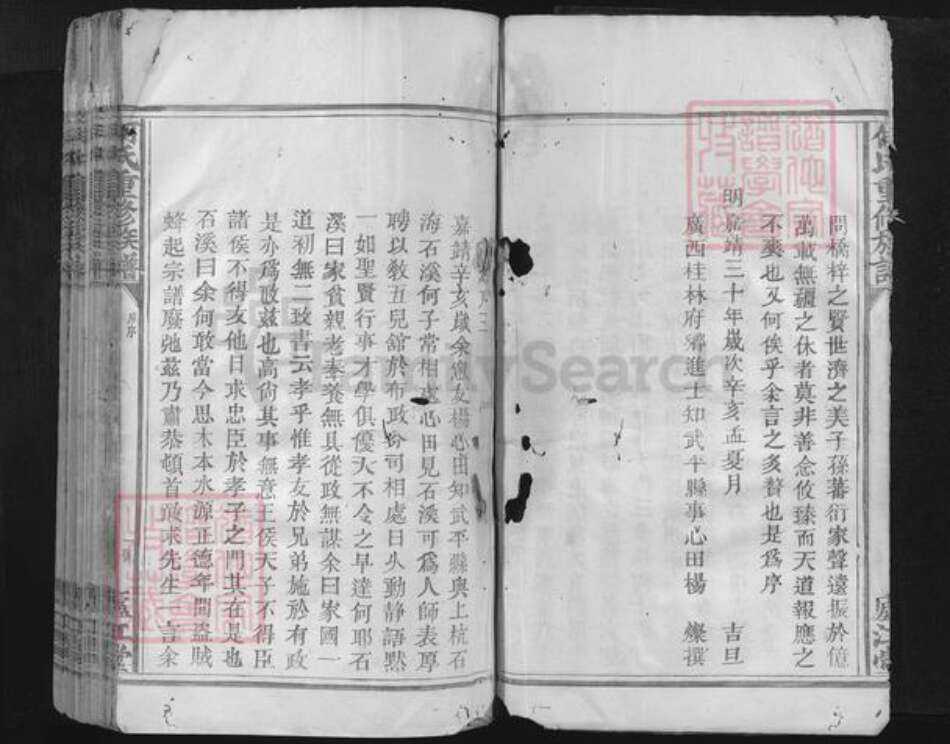 問橋梓之賢世濟之美子孫蕃衍家聲遠振於億
萬載無疆之休者莫非善念攸臻而天道報應之
不爽也又何俟乎余言之多贅也是爲序
明嘉靖三十年歲次辛亥孟夏月 吉旦
廣西桂林府 進士知武平縣事心田楊 燦撰
嘉靖辛亥歲余 友楊心田知武平縣與上杭石
海石溪何子常相 心田見石溪可爲人師表厚
聘以敎五兒舘於布政分司相處日久動靜語默
一如聖賢行事才學俱優大不令之早達何耶石
溪曰家貧親老奉養無具從政無謀余曰家國一
道初無二致書云孝乎惟孝友於兄弟施於有政
是亦爲政兹也高尙其事無意王侯天子不得臣
諸侯不得友他日求忠臣於孝子之門其在是也
石溪曰余何敢當今思木本水源正德年間盜賊
蜂起宗譜廢弛兹乃肅恭頓首敢求先生一言余
氏重修族譜
廬江堂
FamilySearch